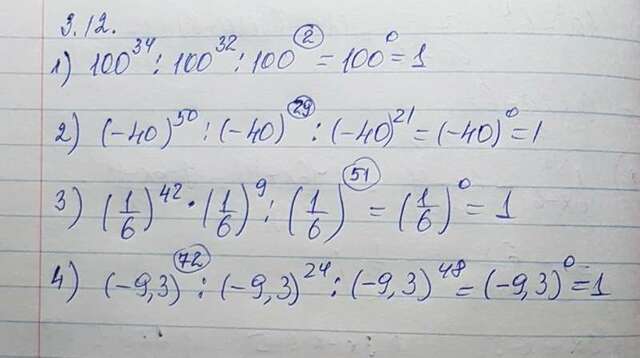 3.12.
1) 100³⁴ : 100³² : 100² = 100⁰ = 1
2) (-40)⁵⁰ : (-40)²⁹ : (-40)²¹ = (-40)⁰ = 1
3) (1/6)⁴² · (1/6)⁹ : (1/6)⁵¹ = (1/6)⁰ = 1
4) (-9,3)⁷² : (-9,3)²⁴ : (-9,3)⁴⁸ = (-9,3)⁰ = 1